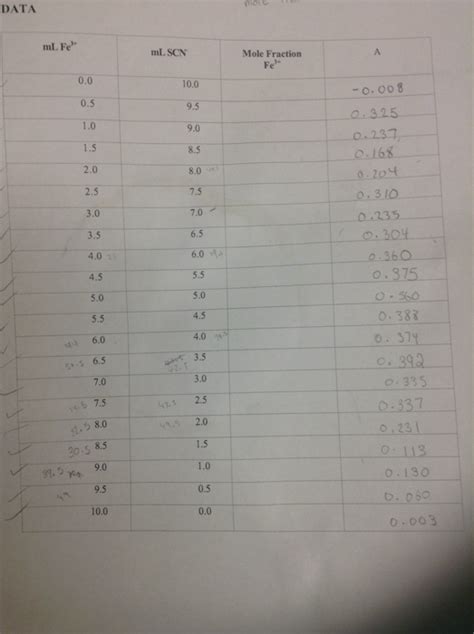 DATA
mL Fe³⁺ mL SCN⁻ Mole Fraction Fe³⁺ A
0.0 10.0 -0.008
0.5 9.5 0.325
1.0 9.0 0.237
1.5 8.5 0.168
2.0 8.0 0.204
2.5 7.5 0.310
3.0 7.0 0.235
3.5 6.5 0.304
4.0 6.0 0.360
4.5 5.5 0.375
5.0 5.0 0.360
5.5 4.5 0.388
6.0 4.0 0.374
6.5 3.5 0.392
7.0 3.0 0.335
7.5 2.5 0.337
8.0 2.0 0.231
30.5 8.5 1.5 0.113
9.0 1.0 0.130
49 9.5 0.5 0.060
10.0 0.0 0.003